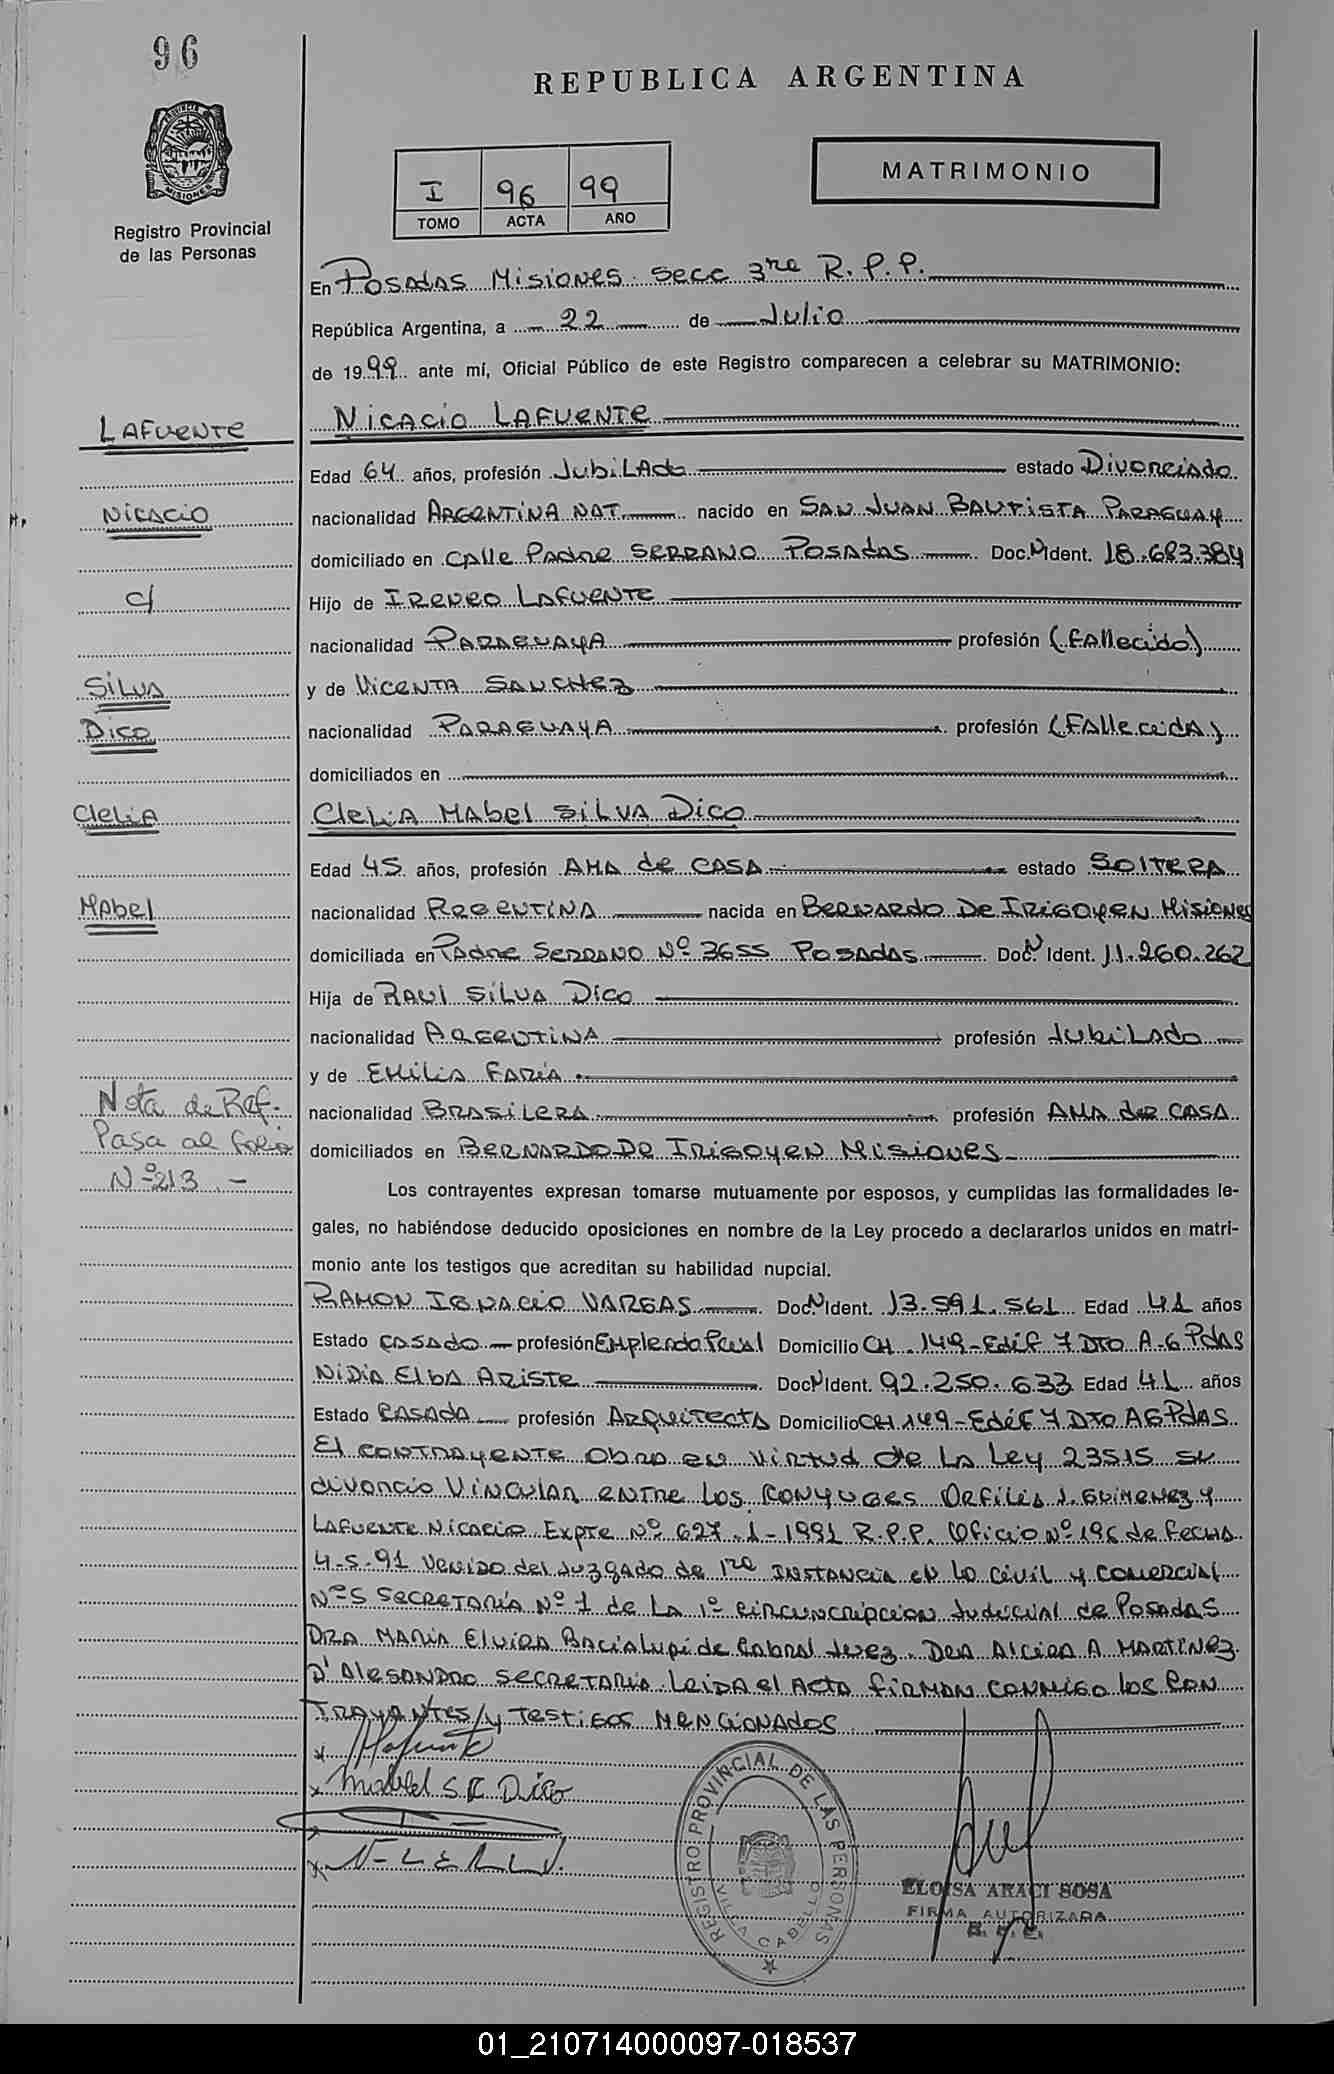 96
REPUBLICA ARGENTINA
PROVINCIA
MISIONES
Registro Provincial
de las Personas
I 96 99
TOMO ACTA AÑO
MATRIMONIO
En Posadas Misiones Secc 3ra R.P.P.
República Argentina, a 22 de Julio
de 1999 ante mí, Oficial Público de este Registro comparecen a celebrar su MATRIMONIO:
LAFUENTE
Nicacio LAFUENTE
Edad 64 años, profesión Jubilado estado Divorciado
Nicacio
nacionalidad ARGENTINA NAT. nacido en SAN JUAN BAUTISTA PARAGUAY
domiciliado en CALLE Padre SERRANO POSADAS Doc. N Ident. 18.683.384
c/
Hijo de IRENEO LAFUENTE
nacionalidad PARAGUAYA profesión (FAllecido)
SILVA
y de VICENTA SANCHEZ
DICO
nacionalidad PARAGUAYA profesión (FAllecidA)
domiciliados en
CleliA
CleliA MAbel SILVA DICO
Edad 45 años, profesión AMA de CASA estado SOLTERA
MAbel
nacionalidad ARGENTINA nacida en BERNARDO DE IRIGOYEN Misiones
domiciliada en PAdre SERRANO Nº 3655 POSADAS Doc. N Ident. 11.260.262
Hija de RAUl SILVA DICO
nacionalidad ARGENTINA profesión JubiLAdo
y de EMILIA FARIA
Nota de Ref.
nacionalidad BRASILERA profesión AMA de CASA
Pasa al folio
domiciliados en BERNARDO DE IRIGOYEN MISIONES
Nº 213.-
Los contrayentes expresan tomarse mutuamente por esposos, y cumplidas las formalidades le-
gales, no habiéndose deducido oposiciones en nombre de la Ley procedo a declararlos unidos en matri-
monio ante los testigos que acreditan su habilidad nupcial.
RAMON IGNACIO VARGAS Doc. N Ident. 13.591.561 Edad 41 años
Estado CASADO profesión Domicilio CH. 149-Edif 7 DTO A-6 PdAS
NIDIA ElbA ARISTE Doc N Ident. 92.250.633 Edad 41 años
Estado CASADA profesión ARQUITECTA Domicilio CH 149-Edif 7 DTO A6 PdAS
El CONTRAYENTE Obra en Virtud de LA Ley 23515 su
divorcio VINCULAR ENTRE los CONYUGES J. GUIMENEZ y
LAFUENTE NICACIO Expte Nº 627-1-1991 R.P.P. Oficio Nº 196 de Fecha
4-5-91 Venido del Juzgado de 1ra INSTANCIA en lo Civil y COMERCIAL
Nº 5 SECRETARIA Nº 1 de LA 1º CIRCUNCRIPCION Judicial de POSADAS
DRA MARIA ElviRA BACIALUPI de CAbRAl Juez. DRA AlCIRA A. MARTINEZ
D'AlESANDRO SECRETARIA. LEIDA el ACTA FIRMAN CONMIGO los CON
TRAYANTES/y TESTIGOS MENCIONADOS
x Lafuente
x Mabel S. Dico
x
REGISTRO PROVINCIAL DE LAS PERSONAS
VILLA CABELLO
ELOISA ARACI SOSA
FIRMA AUTORIZADA
01_210714000097-018537